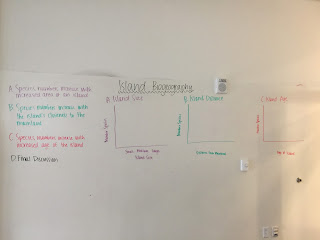 Island Biogeography
A Species number increase with
increased area of the island
B Species number increase with
the island's closeness to the
mainland
C Species number increase with
increased age of the island
D Final Discussion
A) Island Size
Number Species
Small Medium Large
Island Size
B) Island Distance
Number Species
Distance from Mainland
C) Island Age
Number Species
Age of Island